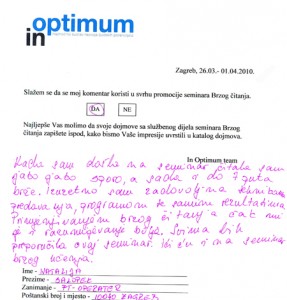 inoptimum
Zagreb, 26.03.- 01.04.2010.
Slažem se da se moj komentar koristi u svrhu promocije seminara Brzog čitanja.
DA NE
Najljepše Vas molimo da svoje dojmove sa službenog dijela seminara Brzog
čitanja zapišete ispod, kako bismo Vaše impresije uvrstili u katalog dojmova.
In Optimum team
Kada sam došla na seminar čitala sam
jako jako sporo, a sada i do 7 puta
brže. Izuzetno sam zadovoljna tehnikama
predavanja, programom te samim rezultatima
Primjenjivanjem brzog čitanja čak mi
je i razumijevanje bolje. Svima bih
preporučila ovaj seminar. Ići ću i na seminar
brzog učenja.
Ime - NATALIJA
Prezime -
Zanimanje - PT-OPERATER
Poštanski broj i mjesto - 10040 ZAGREB